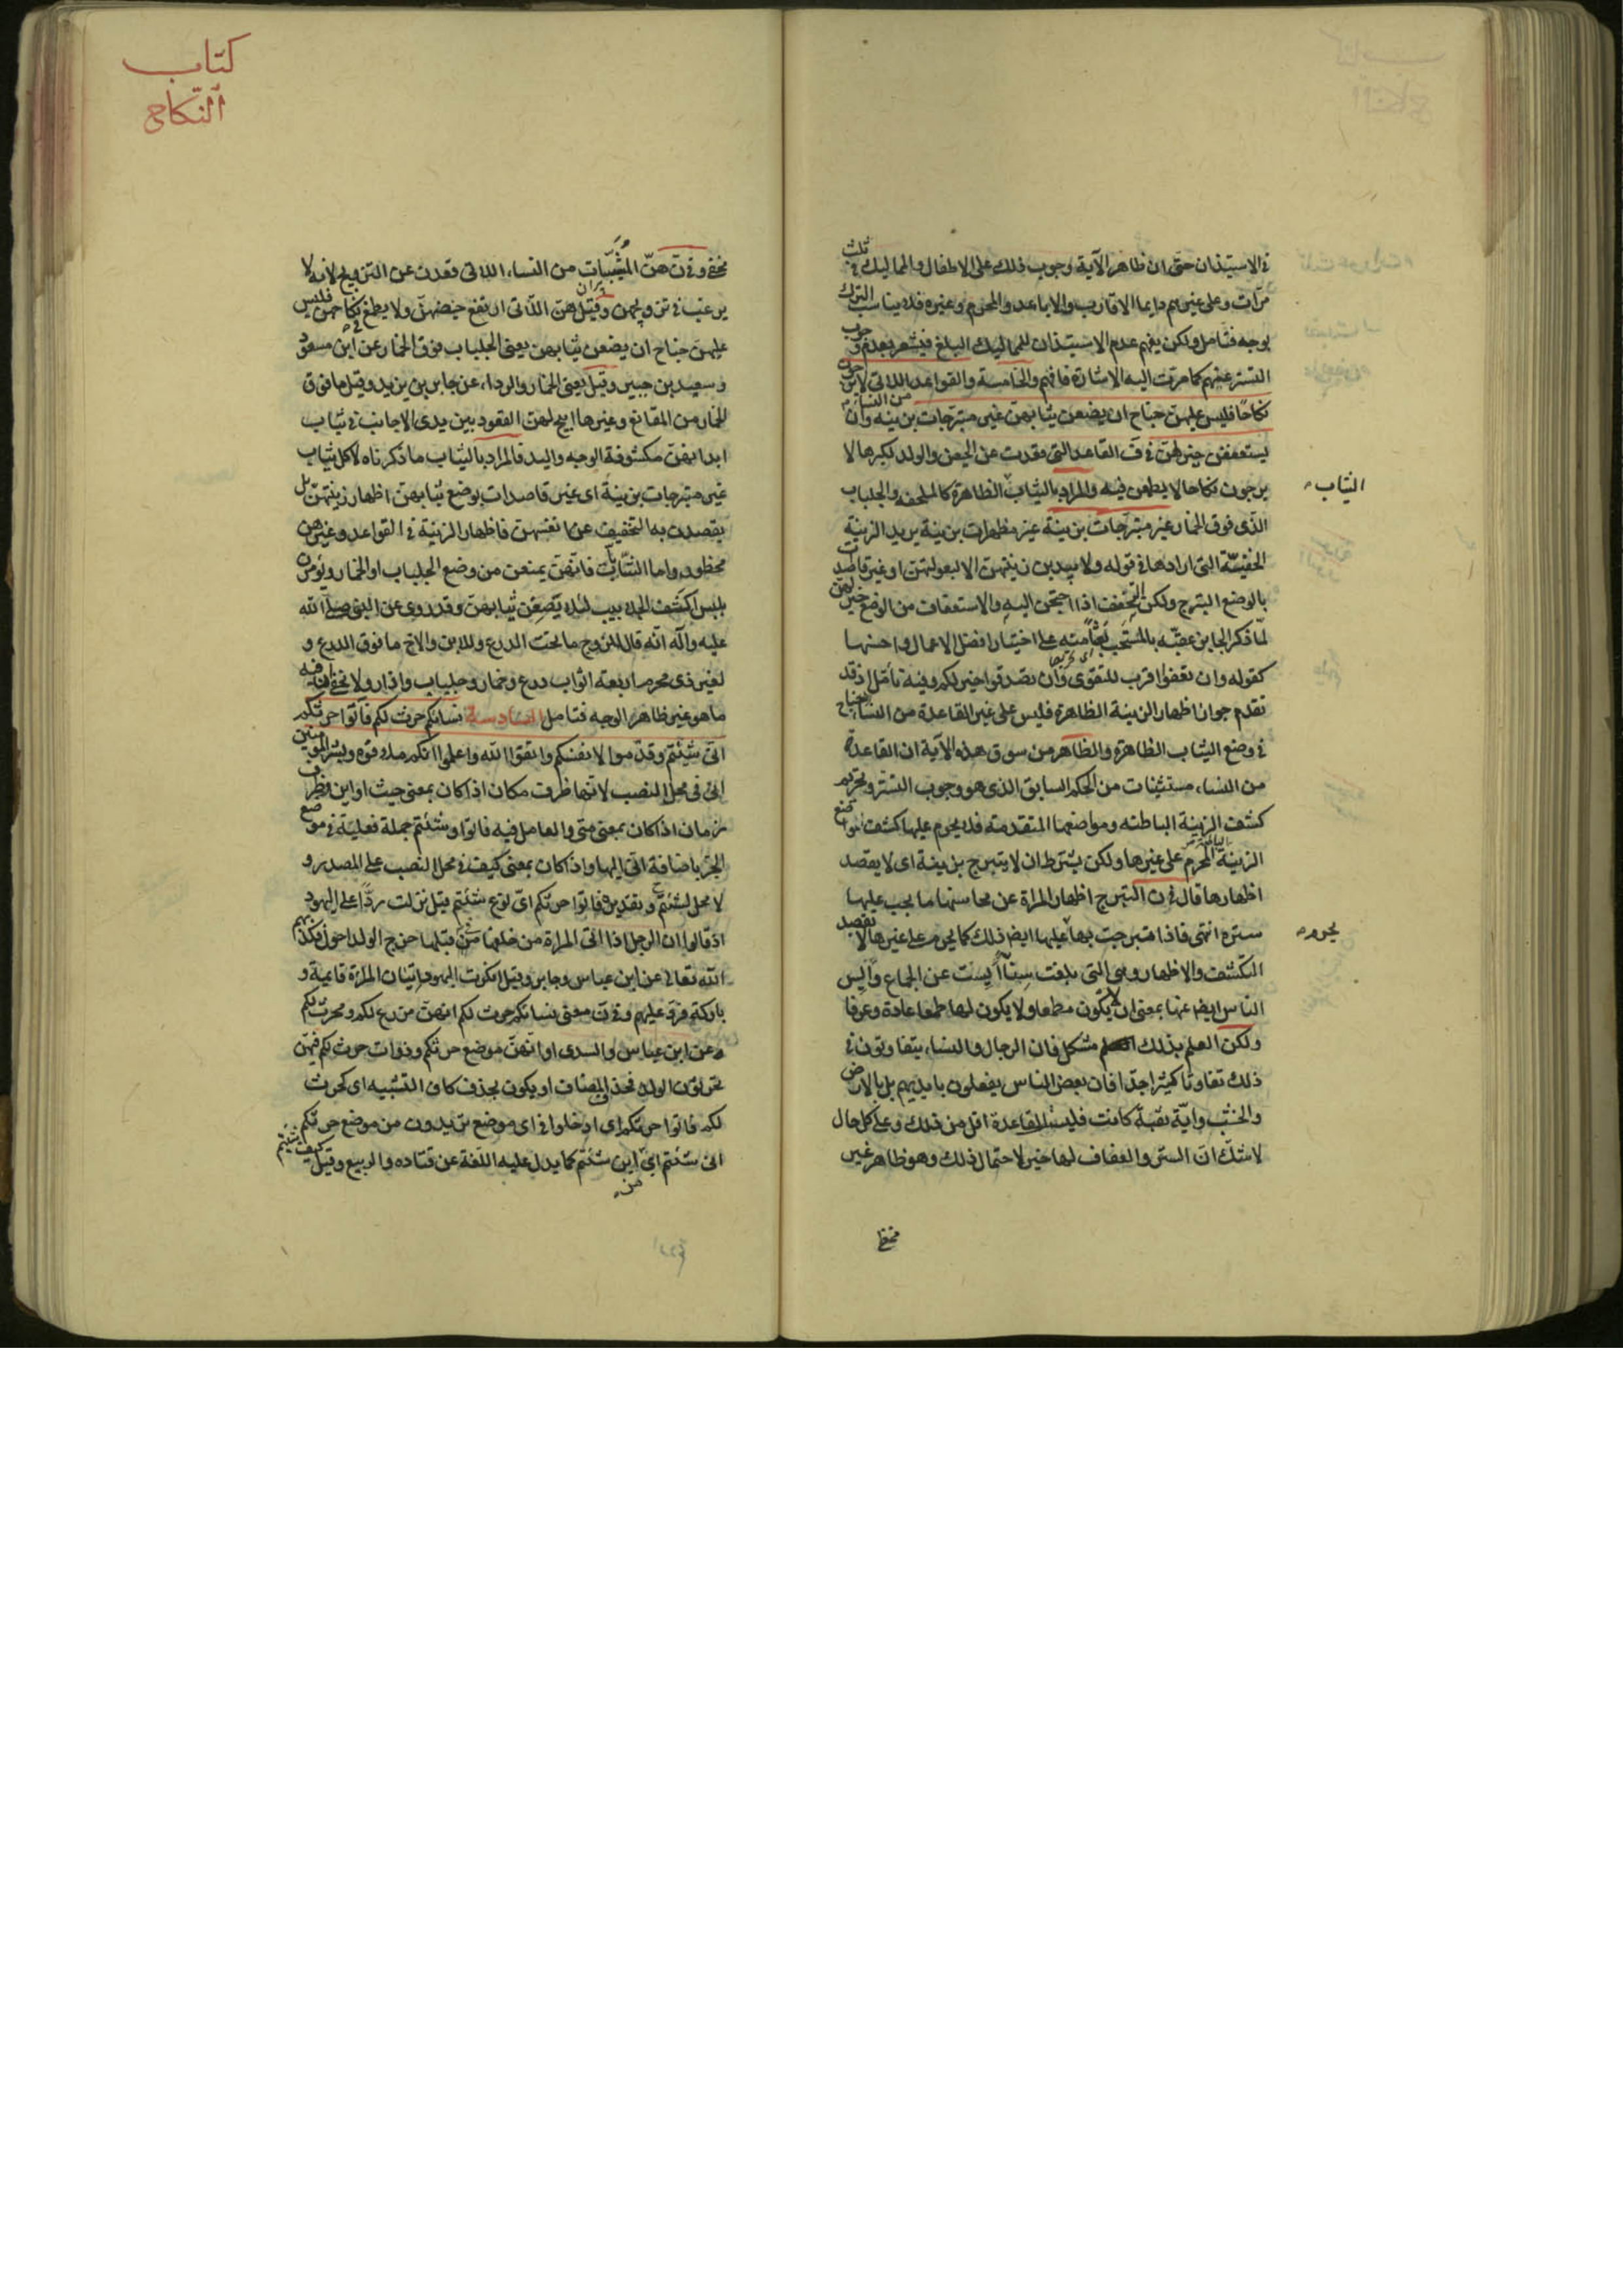 في الاستيذان حتى ان ظاهر الآية وجوب ذلك على الاطفال والمماليك في ثلث
مرّات وعلى غيرهم دايما الاقارب والاباعد والمحرم وغيره فلا يناسب الترك
بوجه فتامل ولكن يفهم عدم الاستيذان للمماليك البلغ فيشعر بعدم وجوب
التستر عنهم كما مرّت اليه الاشارة فافهم والخامسة والقواعد من النساء اللاتي لا يرجون
نكاحًا فليس عليهنّ جناح ان يضعن ثيابهنّ غير متبرجات بزينة وان
يستعففن خير لهنّ في ف القاعد التي قعدت عن الحيض والولد لكبرها لا
يرجون نكاحا لا يطمعن فيه والمراد بالثياب الثياب الظاهرة كالملحفه والجلباب
الذى فوق الخمار غير متبرّجات بزينة غير مظهرات بزينة يريد الزينة
الخفيّة التي ارادها في قوله ولا يبدين زينتهنّ الا لبعولتهنّ او غير قاصدات
بالوضع التبرج ولكن التخفف اذا احتجن اليه والاستعفاف من الوضع خير لهنّ
لمّا ذكر الجايز عقبّه بالمستحب بعثا منه على اختيار افضل الاعمال واحسنها
كقوله وان تعفوا اقرب للتقوى وان تصدقوا خير لكم وفيه تامّل اذ قد
تقدم جواز اظهار الزينة الظاهرة فليس على غير القاعدة من النساء جناح
في وضع الثياب الظاهرة والظاهر من سوق هذه الآية ان القاعدة
من النساء مستثنيات من الحكم السابق الذى هو وجوب التستر وتحريم
كشف الزينة الباطنه ومواضعها المتقدمة فلا يحرم عليها كشف مواضع
الزينة المحرم على غيرها ولكن يشترط ان لا يتبرج بزينة اى لا يقصد
اظهارها قال في ن التبرج اظهار المراة عن محاسنها ما يجب عليها
ستره انتهى فاذا تبرجت بها يحرم عليها ايضا ذلك كما يحرم على غيرها لا بقصد
التكشف والاظهار وهي التي بلغت سنا أيست عن الجماع وايس
الناس ايضا عنها بمعنى ان لا يكون مطمعا ولا يكون لها طمعا عادة وعرفا
ولكن العلم بذلك مشكل فان الرجال والنساء يتفاوتون في
ذلك تفاوتا كثيرا جدّا فان بعض الناس يفعلون بايديهم بل بالارض
والخشب وايّة ثقبة كانت فليست القاعدة اقل من ذلك وعلى كل حال
لا شكّ ان الستر والعفاف لها خير لاحتمال ذلك وهو ظاهر غير
مخفي
الثياب
يحرم
كتاب
النكاح
مخفي وفي ن هنّ المسنّات من النساء اللاتي قعدن عن التزويج لانه لا
يرغب في تزويجهن وقيل هنّ اللاتي ارتفع حيضهنّ ولا يطمع في نكاحهن فليس
عليهنّ جناح ان يضعن ثيابهن يعنى الجلباب فوق الخمار عن ابن مسعود
وسعيد بن جبير وقيل يعنى الخمار والرداء عن جابر بن يزيد وقيل ما فوق
الخمار من المقانع وغيرها ابيح لهنّ القعود بين يدى الاجانب في ثياب
ابدانهنّ مكشوفة الوجه واليد فالمراد بالثياب ما ذكرناه لا كل ثياب
غير متبرجات بزينة اى غير قاصدات بوضع ثيابهنّ اظهار زينتهنّ بل
يقصدن به التخفيف عن انفسهن فاظهار الزينة في القواعد وغيرهن
محظور واما الشابّات فانّهنّ يمنعن من وضع الجلباب او الخمار ويؤمرن
بلبس اكثف الجلابيب لئلا يصفهن ثيابهنّ وقد روى عن النبى صلّى الله
عليه وآله انّه قال للزوج ما تحت الدرع وللابن والاخ ما فوق الدرع و
لغير ذى محرم اربعة اثواب درع وخمار وجلباب وازار ولا يخفى ان فيه
ما هو غير ظاهر الوجه فتامل السادسة نساؤكم حرث لكم فأتوا حرثكم
انّى شئتم وقدّموا لانفسكم واتقوا الله واعلموا انكم ملاقوه وبشر المؤمنين
انى في محل النصب لانّها ظرف مكان اذا كان بمعنى حيث او اين وظرف
زمان اذا كان بمعنى متى والعامل فيه فاتوا وشئتم جملة فعلية في موضع
الجرّ باضافة انّى اليها واذا كان بمعنى كيف في محل النصب على المصدر و
لا محل لشئتم وتقديره فاتوا حرثكم اىّ نوع شئتم قيل نزلت ردًّا على اليهود
اذ قالوا ان الرجل اذا اتى المراة من خلفها في قبلها خرج الولد احول فكذّبهم
الله تعالى عن ابن عباس وجابر وقيل انكرت اليهود اتيان المراة قائمة و
باركة فردّ عليهم وفي ن معنى نساؤكم حرث لكم انهنّ مزرع لكم ومحرث لكم
عن ابن عباس والسدى او انّهنّ موضع حرثكم وذوات حرث لكم فيهنّ
تحرثون الولد فحذف المضاف او يكون بحذف كاف التشبيه اى كحرث
لكم فاتوا حرثكم اى ادخلوا في اى موضع تريدون من موضع حرثكم
انى شئتم اى من اين شئتم كما يدل عليه اللغة عن قتاده والربيع وقيل كيف شئتم